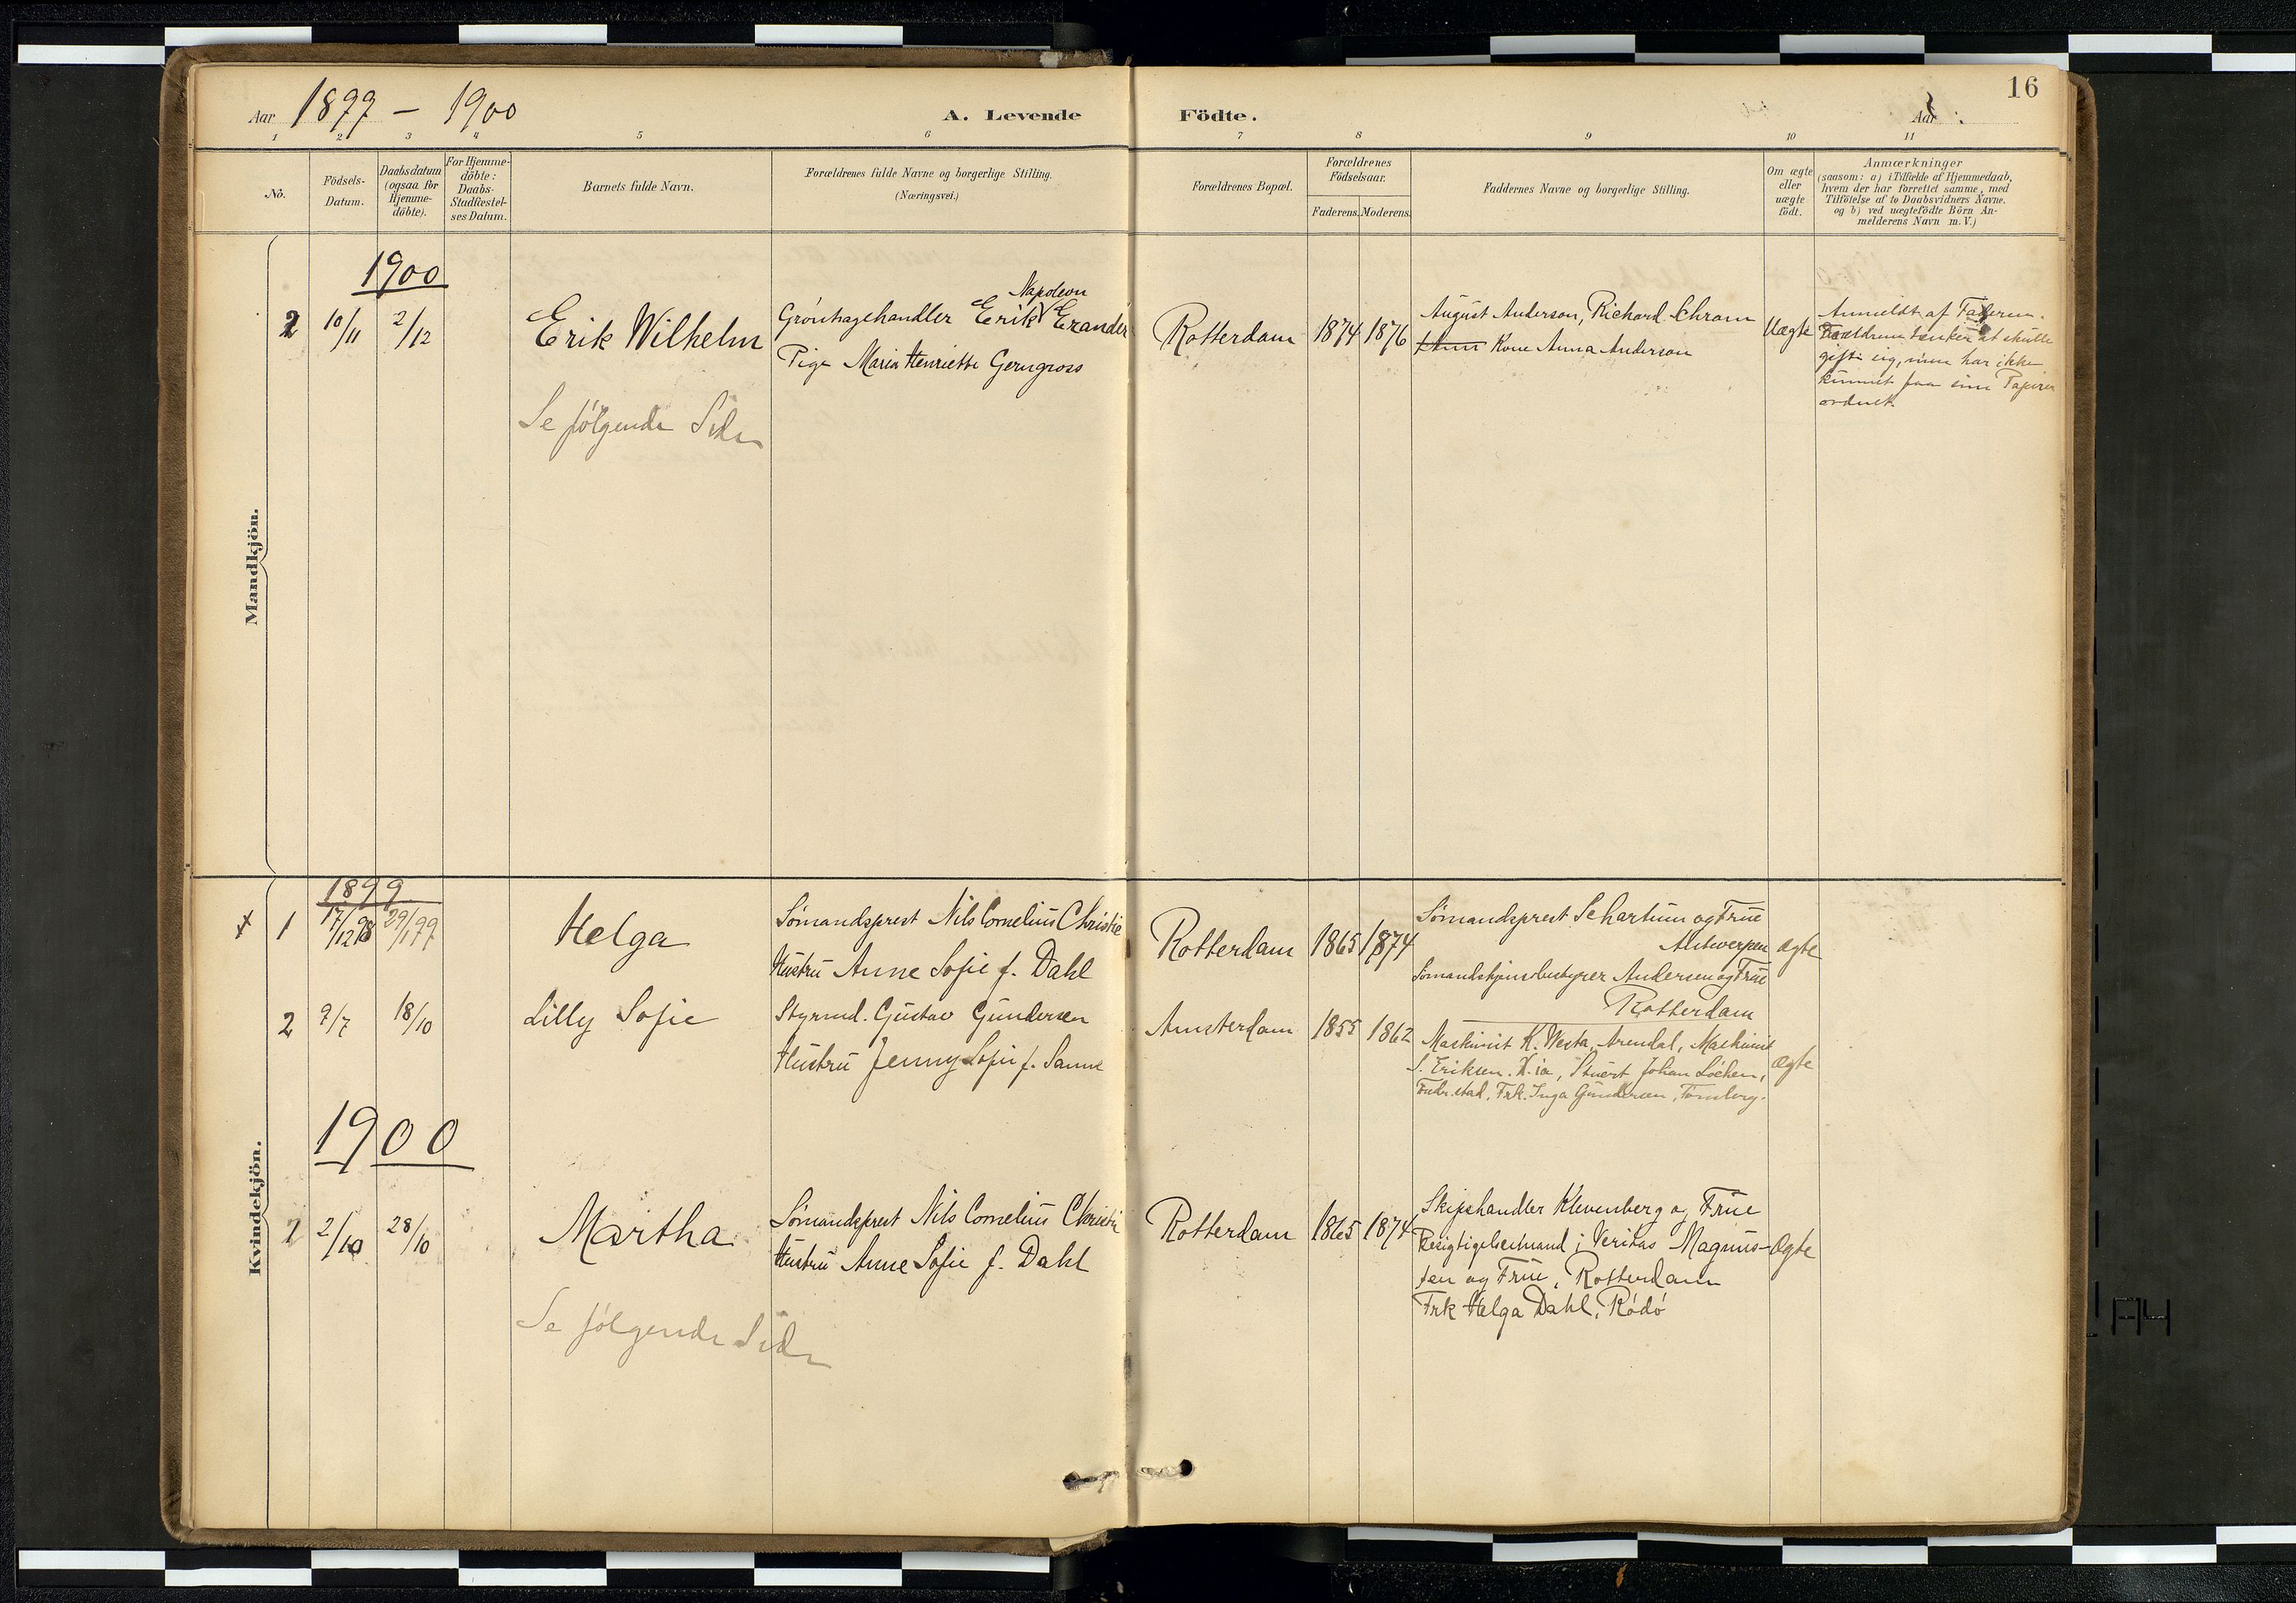 Aar 1899 - 1900 A. Levende Födte. Aar 16
1 2 3 4 5 6 7 8 9 10 11
No. Födsels-Datum. Daabsdatum (ogsaa for Hjemme-döbte). For Hjemme-döbte: Daabs-Stadfæstel-ses Datum. Barnets fulde Navn. Forældrenes fulde Navne og borgerlige Stilling. (Næringsvei.) Forældrenes Bopæl. Forældrenes Födselsaar. Faderens. Moderens. Faddernes Navne og borgerlige Stilling. Om ægte eller uægte födt. Anmærkninger (saasom: a) i Tilfælde af Hjemmedaab, hvem der har forrettet samme, med Tilföielse af to Daabsvidners Navne. og b) ved uægtefödte Börn An-melderens Navn m. V.)
Mandkjön.
1900
2 10/11 2/12 Erik Wilhelm
Napoleon
Grönhagehandler Erik Erander
Pige Maria Henriette Gerngross
Rotterdam 1874 1876
August Anderson, Richard Chram
Kone Anna Anderson
Uægte
Anmeldt af Faderen.
Forældrene tænker at skulle
gifte sig, men har ikke
kunnet faa sine Papirer
ordnet.
Se følgende Side
Kvindekjön.
1899
1 17/12 98 29/1 99 Helga
Sömandsprest Nils Cornelius Christie
Hustru Anne Sofie f. Dahl
Rotterdam 1865 1874
Sömandsprest Schartum og Frue
Antwerpen
Sömandshjemsbestyrer Andersen og Frue
Rotterdam
Ægte
2 9/7 18/10 Lilly Sofie
Styrmd. Gustav Gundersen
Hustru Jenny Sofie f. Sanne
Amsterdam 1855 1862
Maskinist K. Westa, Arendal, Maskinist
S. Eriksen. K.ia, Stuert Johan Löchen,
Fredr.stad, Frk. Inga Gundersen, Tønsberg.
Ægte
1900
1 2/10 28/10 Martha
Sömandsprest Nils Cornelius Christie
Hustru Anne Sofie f. Dahl
Rotterdam 1865 1874
Skipshandler Klevenberg og Frue
Besigtigelsesmand i Veritas Magnus-
sen og Frue, Rotterdam
Frk Helga Dahl, Rödö
Ægte
Se følgende Side